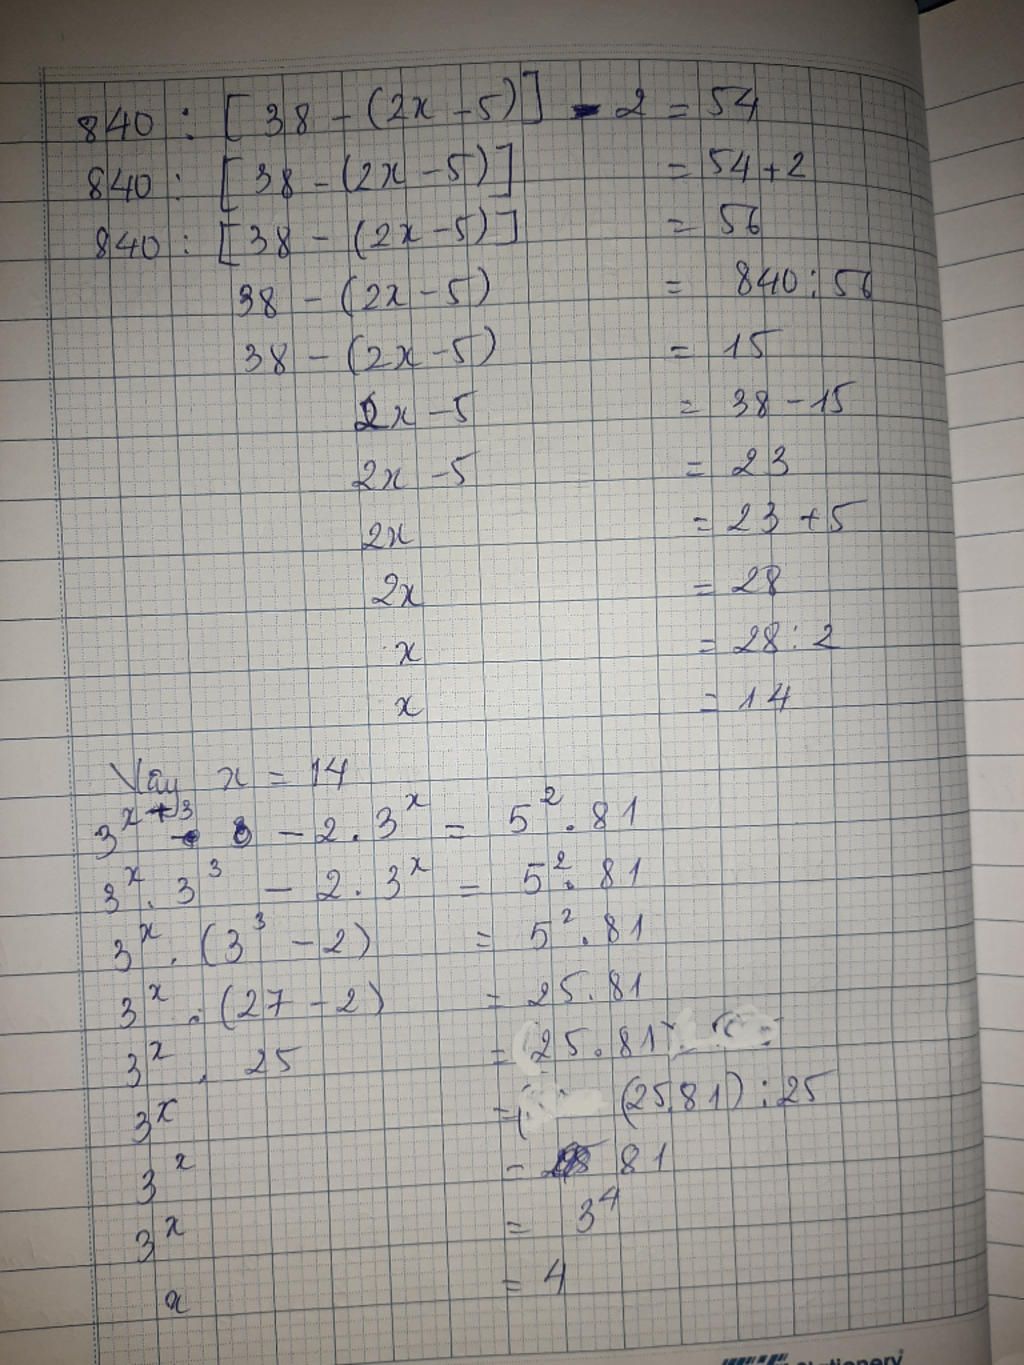 840 : [38 - (2x - 5)] - 2 = 54
840 : [38 - (2x - 5)] = 54 + 2
840 : [38 - (2x - 5)] = 56
38 - (2x - 5) = 840 : 56
38 - (2x - 5) = 15
2x - 5 = 38 - 15
2x - 5 = 23
2x = 23 + 5
2x = 28
x = 28 : 2
x = 14
Vậy x = 14
3^{x+3} - 2 . 3^x = 5^2 . 81
3^x . 3^3 - 2 . 3^x = 5^2 . 81
3^x . (3^3 - 2) = 5^2 . 81
3^x . (27 - 2) = 25 . 81
3^x . 25 = 25 . 81
3^x = (25.81) : 25
3^x = 81
3^x = 3^4
x = 4